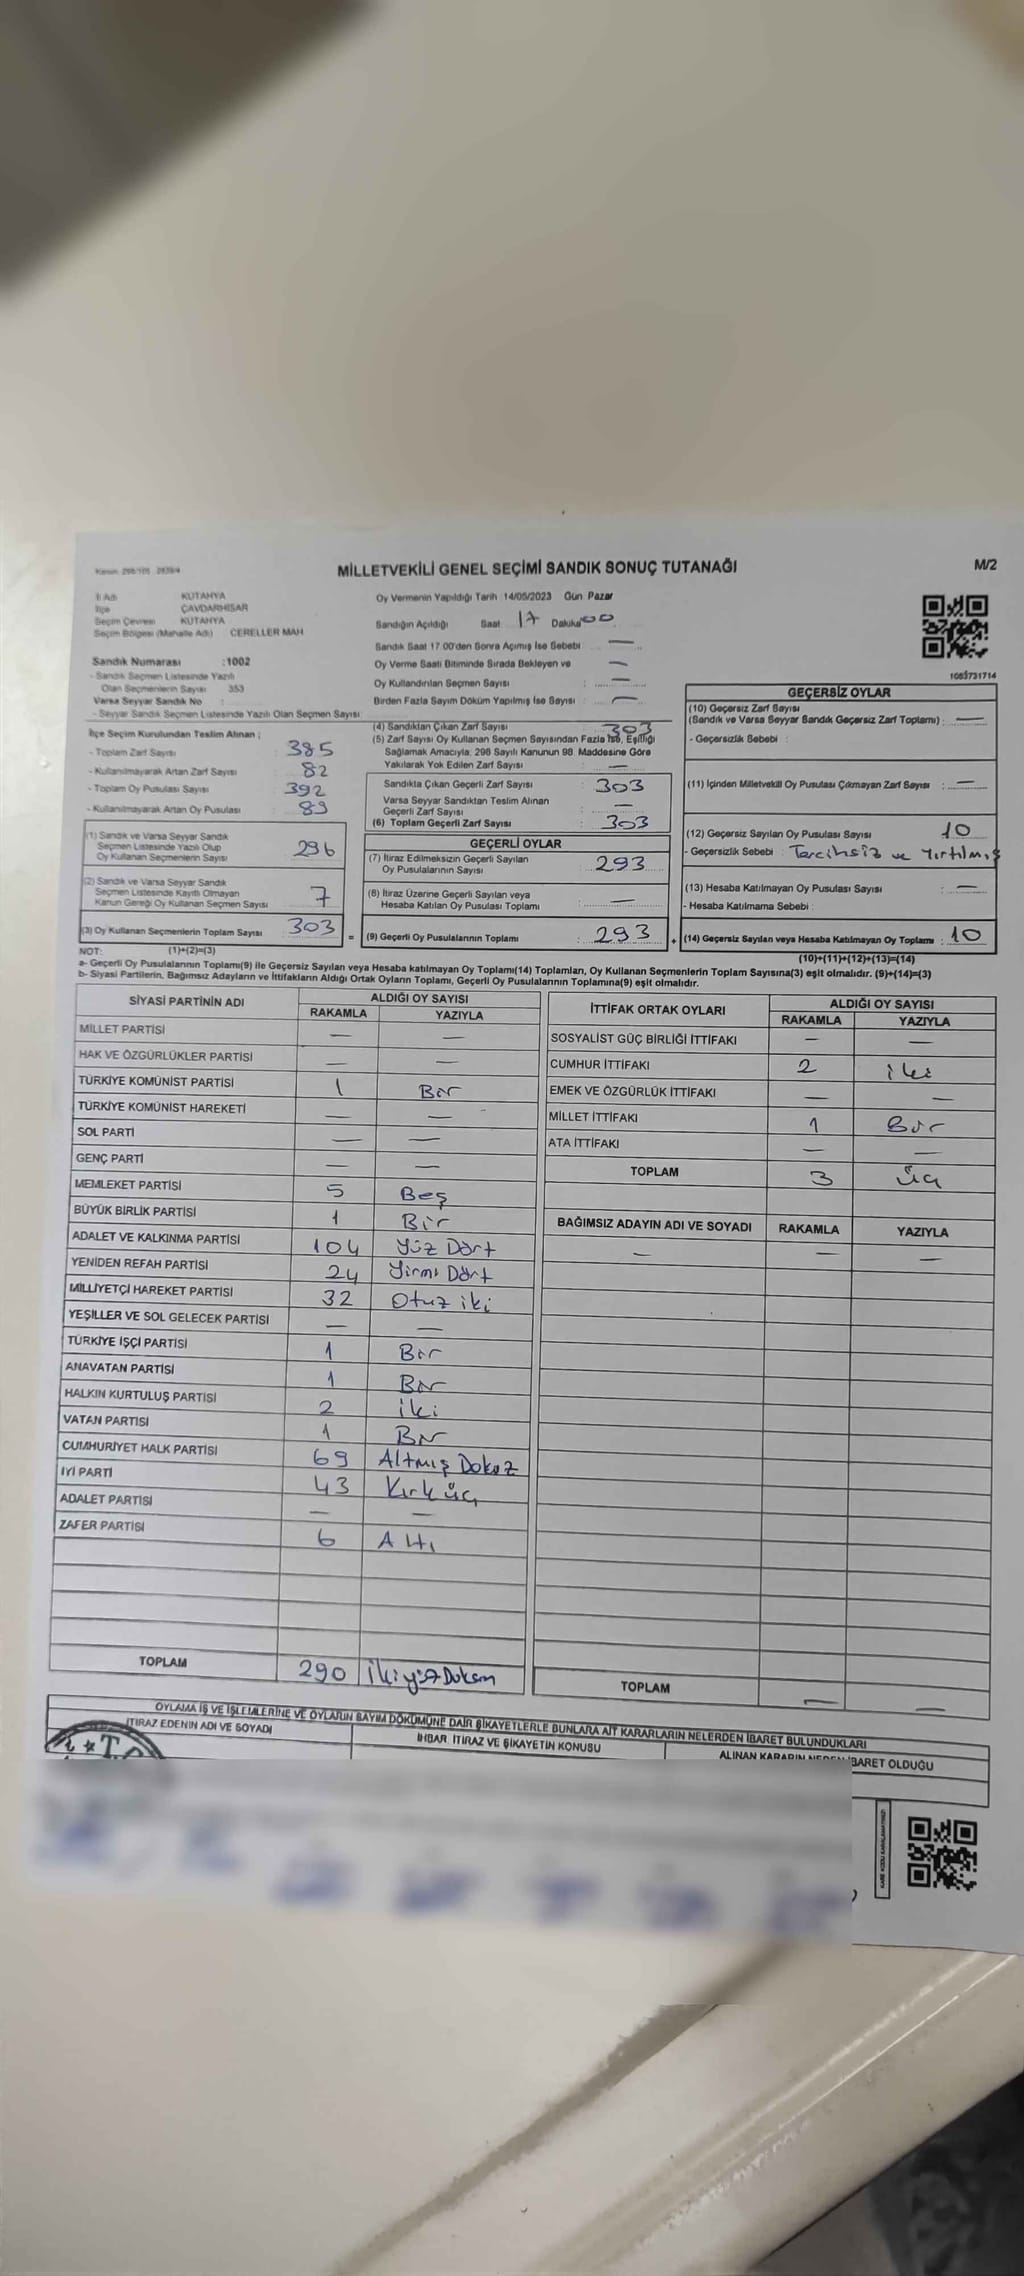 MİLLETVEKİLİ GENEL SEÇİMİ SANDIK SONUÇ TUTANAĞI
M/2
İl Adı KÜTAHYA
İlçe ÇAVDARHİSAR
Seçim Çevresi KÜTAHYA
Seçim Bölgesi (Mahalle Adı) CERELLER MAH
Sandık Numarası :1002
- Sandık Seçmen Listesinde Yazılı
Olan Seçmenlerin Sayısı 353
Varsa Seyyar Sandık No :
- Seyyar Sandık Seçmen Listesinde Yazılı Olan Seçmen Sayısı:
İlçe Seçim Kurulundan Teslim Alınan ;
- Toplam Zarf Sayısı : 385
- Kullanılmayarak Artan Zarf Sayısı : 82
- Toplam Oy Pusulası Sayısı : 392
- Kullanılmayarak Artan Oy Pusulası : 89
(1) Sandık ve Varsa Seyyar Sandık
Seçmen Listesinde Yazılı Olup
Oy Kullanan Seçmenlerin Sayısı : 296
(2) Sandık ve Varsa Seyyar Sandık
Seçmen Listesinde Kayıtlı Olmayan
Kanun Gereği Oy Kullanan Seçmen Sayısı : 7
(3) Oy Kullanan Seçmenlerin Toplam Sayısı : 303
(1)+(2)=(3)
Oy Vermenin Yapıldığı Tarih :14/05/2023 Gün Pazar
Sandığın Açıldığı Saat 17 Dakika 00
Sandık Saat 17.00'den Sonra Açılmış İse Sebebi : —
Oy Verme Saati Bitiminde Sırada Bekleyen ve —
Oy Kullandırılan Seçmen Sayısı : —
Birden Fazla Sayım Döküm Yapılmış İse Sayısı : —
(4) Sandıktan Çıkan Zarf Sayısı : 303
(5) Zarf Sayısı Oy Kullanan Seçmen Sayısından Fazla İse, Eşitliği
Sağlamak Amacıyla, 298 Sayılı Kanunun 98. Maddesine Göre
Yakılarak Yok Edilen Zarf Sayısı : —
Sandıkta Çıkan Geçerli Zarf Sayısı : 303
Varsa Seyyar Sandıktan Teslim Alınan
Geçerli Zarf Sayısı : —
(6) Toplam Geçerli Zarf Sayısı : 303
GEÇERLİ OYLAR
(7) İtiraz Edilmeksizin Geçerli Sayılan
Oy Pusulalarının Sayısı : 293
(8) İtiraz Üzerine Geçerli Sayılan veya
Hesaba Katılan Oy Pusulası Toplamı : —
= (9) Geçerli Oy Pusulalarının Toplamı : 293
1083731714
GEÇERSİZ OYLAR
(10) Geçersiz Zarf Sayısı
(Sandık ve Varsa Seyyar Sandık Geçersiz Zarf Toplamı) : —
- Geçersizlik Sebebi :
(11) İçinden Milletvekili Oy Pusulası Çıkmayan Zarf Sayısı : —
(12) Geçersiz Sayılan Oy Pusulası Sayısı : 10
- Geçersizlik Sebebi : Tercihsiz ve Yırtılmış
(13) Hesaba Katılmayan Oy Pusulası Sayısı : —
- Hesaba Katılmama Sebebi :
+ (14) Geçersiz Sayılan veya Hesaba Katılmayan Oy Toplamı : 10
(10)+(11)+(12)+(13)=(14)
NOT:
a- Geçerli Oy Pusulalarının Toplamı(9) ile Geçersiz Sayılan veya Hesaba katılmayan Oy Toplamı(14) Toplamları, Oy Kullanan Seçmenlerin Toplam Sayısına(3) eşit olmalıdır. (9)+(14)=(3)
b- Siyasi Partilerin, Bağımsız Adayların ve İttifakların Aldığı Ortak Oyların Toplamı, Geçerli Oy Pusulalarının Toplamına(9) eşit olmalıdır.
SİYASİ PARTİNİN ADI ALDIĞI OY SAYISI
RAKAMLA YAZIYLA
MİLLET PARTİSİ — —
HAK VE ÖZGÜRLÜKLER PARTİSİ — —
TÜRKİYE KOMÜNİST PARTİSİ 1 Bir
TÜRKİYE KOMÜNİST HAREKETİ — —
SOL PARTİ — —
GENÇ PARTİ — —
MEMLEKET PARTİSİ 5 Beş
BÜYÜK BİRLİK PARTİSİ 1 Bir
ADALET VE KALKINMA PARTİSİ 104 Yüz Dört
YENİDEN REFAH PARTİSİ 24 Yirmi Dört
MİLLİYETÇİ HAREKET PARTİSİ 32 Otuz iki
YEŞİLLER VE SOL GELECEK PARTİSİ — —
TÜRKİYE İŞÇİ PARTİSİ 1 Bir
ANAVATAN PARTİSİ 1 Bir
HALKIN KURTULUŞ PARTİSİ 2 iki
VATAN PARTİSİ 1 Bir
CUMHURİYET HALK PARTİSİ 69 Altmış Dokuz
İYİ PARTİ 43 Kırk üç
ADALET PARTİSİ — —
ZAFER PARTİSİ 6 Altı
TOPLAM 290 İkiyüzDoksan
İTTİFAK ORTAK OYLARI ALDIĞI OY SAYISI
RAKAMLA YAZIYLA
SOSYALİST GÜÇ BİRLİĞİ İTTİFAKI — —
CUMHUR İTTİFAKI 2 iki
EMEK VE ÖZGÜRLÜK İTTİFAKI — —
MİLLET İTTİFAKI 1 Bir
ATA İTTİFAKI — —
TOPLAM 3 üç
BAĞIMSIZ ADAYIN ADI VE SOYADI RAKAMLA YAZIYLA
— — —
TOPLAM — —
OYLAMA İŞ VE İŞLEMLERİNE VE OYLARIN SAYIM DÖKÜMÜNE DAİR ŞİKAYETLERLE BUNLARA AİT KARARLARIN NELERDEN İBARET BULUNDUKLARI
İTİRAZ EDENİN ADI VE SOYADI
İHBAR, İTİRAZ VE ŞİKAYETİN KONUSU
ALINAN KARARIN NEDEN İBARET OLDUĞU